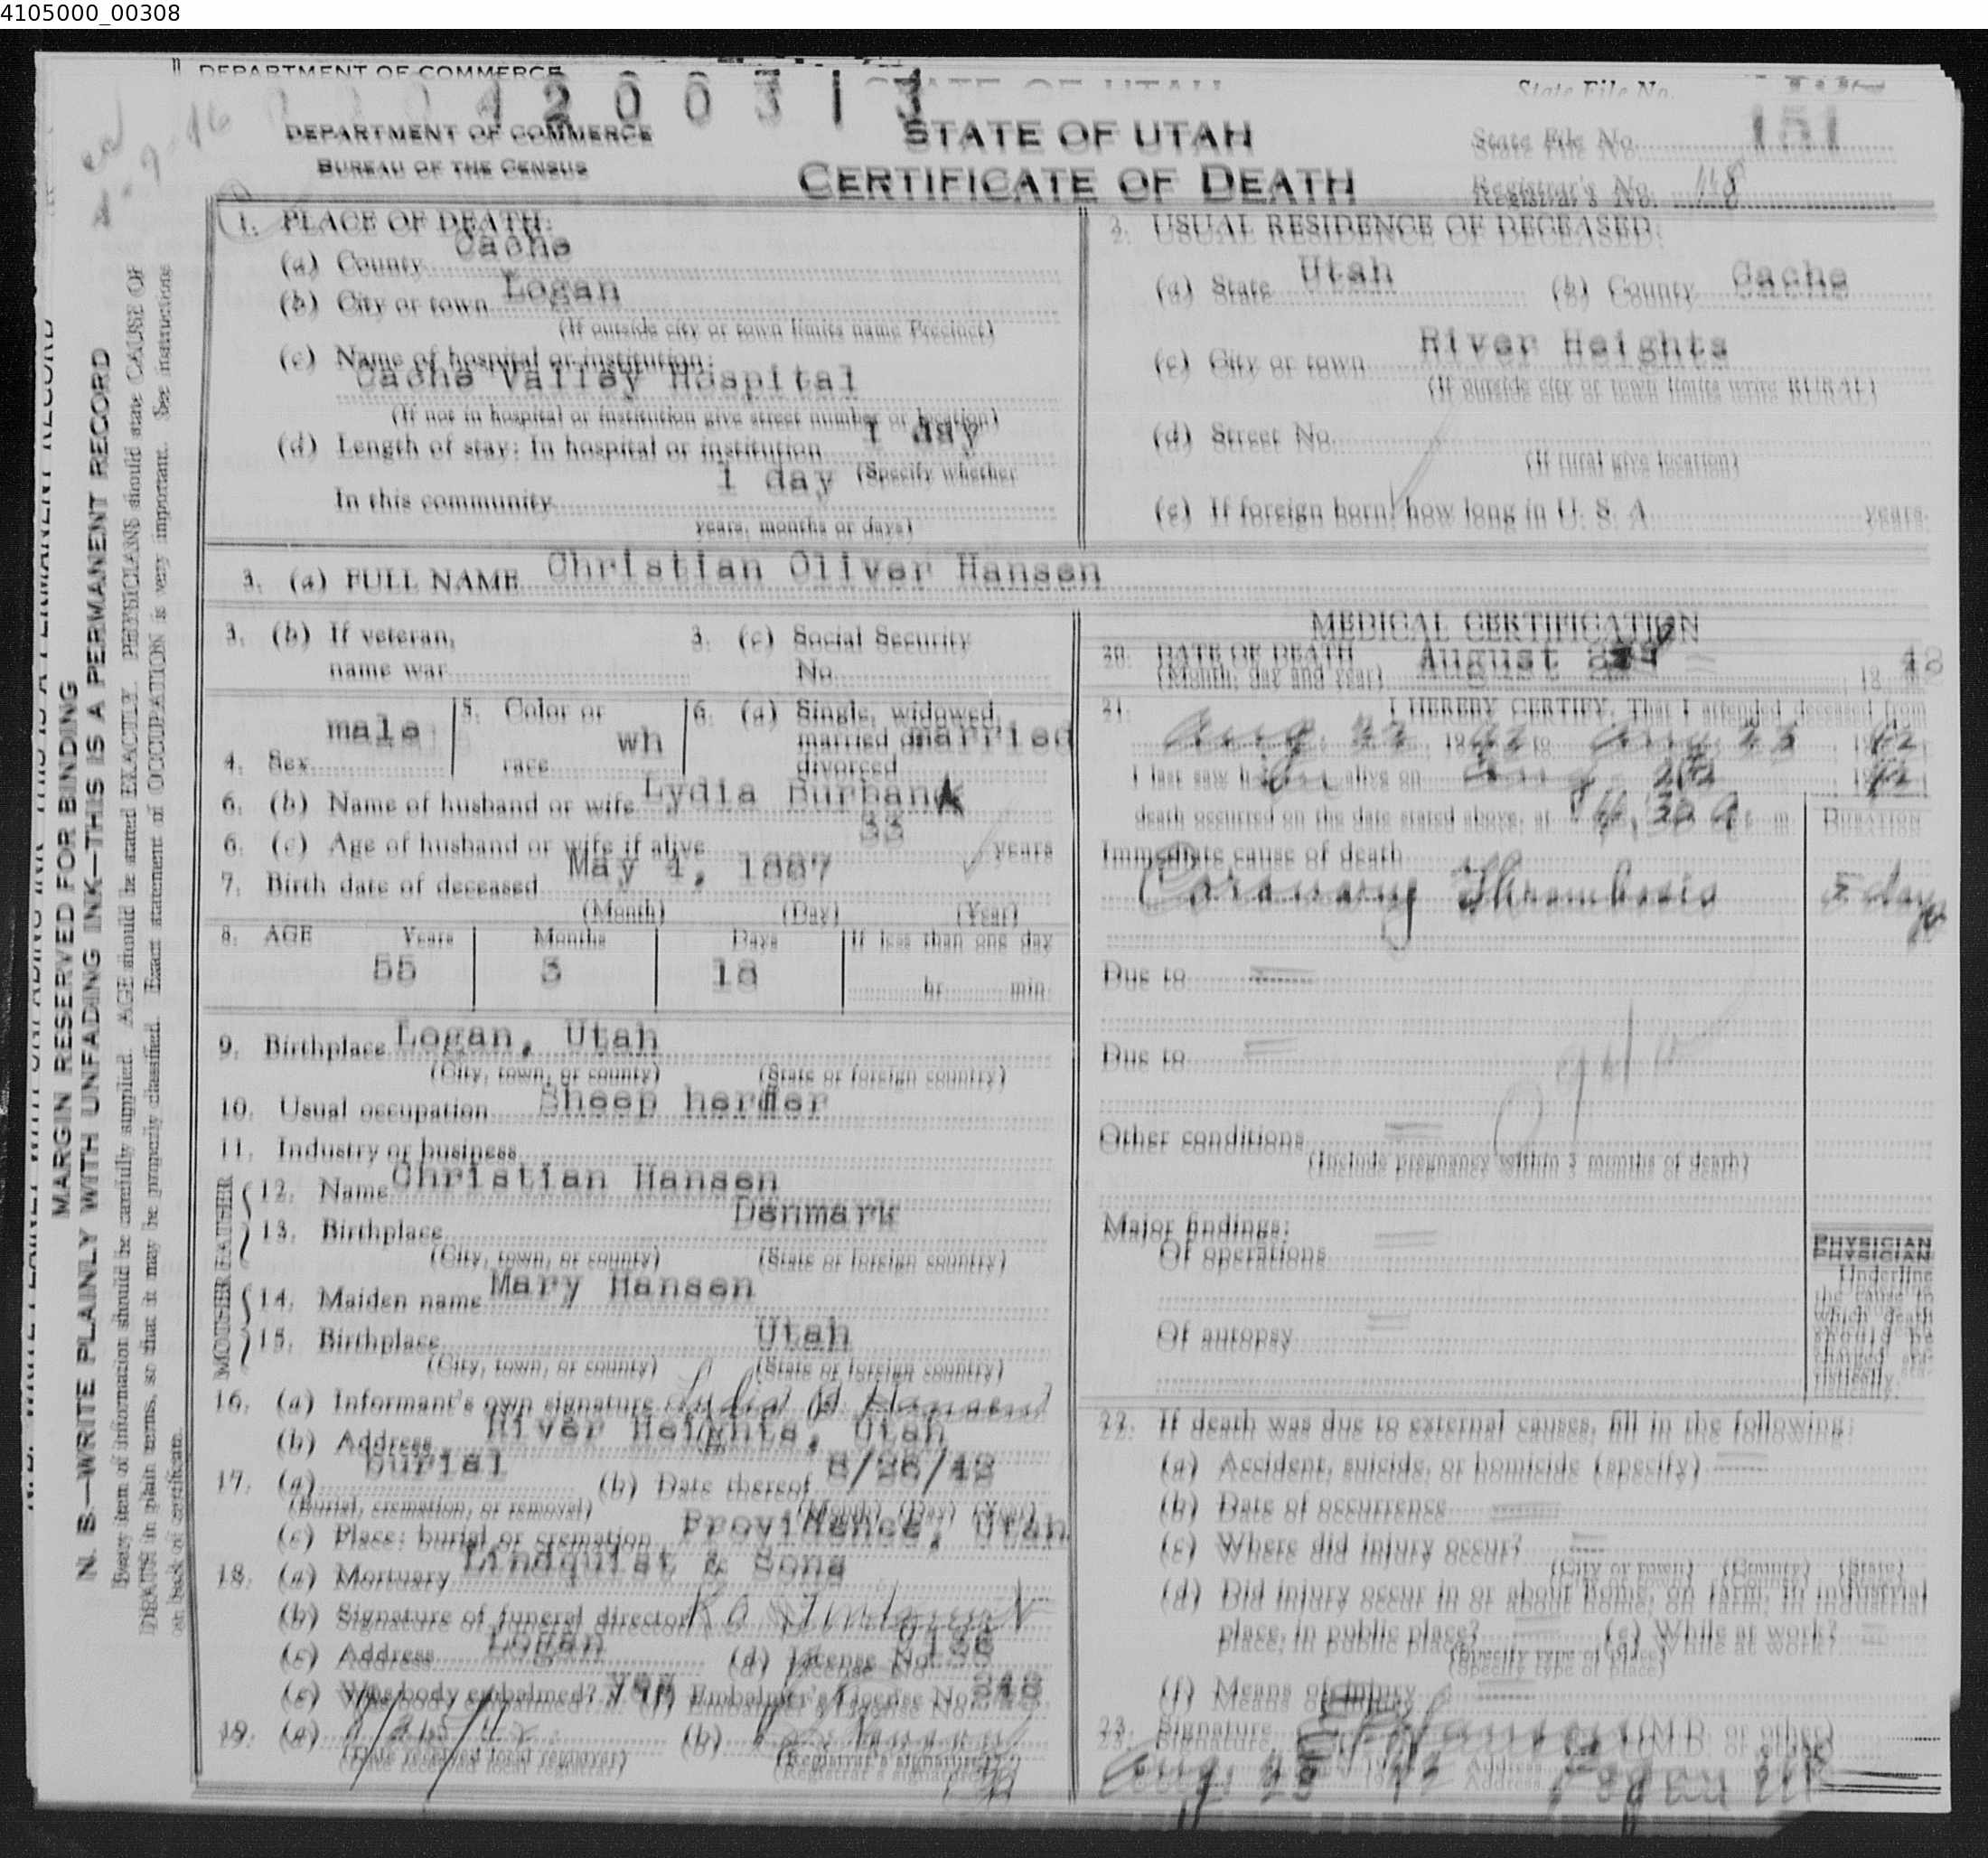 4105000_00308
DEPARTMENT OF COMMERCE
STATE OF UTAH
State File No.
4 2 0 0 3 1 3
DEPARTMENT OF COMMERCE
STATE OF UTAH
State File No. 151
BUREAU OF THE CENSUS
CERTIFICATE OF DEATH
Registrar's No. 148
MARGIN RESERVED FOR BINDING
N. B.—WRITE PLAINLY WITH UNFADING INK—THIS IS A PERMANENT RECORD
Every item of information should be carefully supplied. AGE should be stated EXACTLY. PHYSICIANS should state CAUSE OF
DEATH in plain terms, so that it may be properly classified. Exact statement of OCCUPATION is very important. See instructions
on back of certificate.
1. PLACE OF DEATH:
(a) County Cache
(b) City or town Logan
(If outside city or town limits name Precinct)
(c) Name of hospital or institution:
Cache Valley Hospital
(If not in hospital or institution give street number or location)
(d) Length of stay: In hospital or institution 1 day
(Specify whether
In this community 1 day
years, months or days)
2. USUAL RESIDENCE OF DECEASED:
(a) State Utah (b) County Cache
(c) City or town River Heights
(If outside city or town limits write RURAL)
(d) Street No.
(If rural give location)
(e) If foreign born, how long in U. S. A. years.
3. (a) FULL NAME Christian Oliver Hansen
3. (b) If veteran,
name war
3. (c) Social Security
No.
4. Sex male
5. Color or
race wh
6. (a) Single, widowed,
married or married
divorced
6. (b) Name of husband or wife Lydia Burbank
6. (c) Age of husband or wife if alive 33 years
7. Birth date of deceased May 4, 1887
(Month) (Day) (Year)
8. AGE Years Months Days If less than one day
55 3 18 hr. min.
9. Birthplace Logan, Utah
(City, town, or county) (State or foreign country)
10. Usual occupation Sheep herder
11. Industry or business
FATHER
12. Name Christian Hansen
13. Birthplace Denmark
(City, town, or county) (State or foreign country)
MOTHER
14. Maiden name Mary Hansen
15. Birthplace Utah
(City, town, or county) (State or foreign country)
16. (a) Informant's own signature Lydia B. Hansen
(b) Address River Heights, Utah
17. (a) burial (b) Date thereof 8/26/42
(Burial, cremation, or removal) (Month) (Day) (Year)
(c) Place: burial or cremation Providence, Utah
18. (a) Mortuary Lindquist & Sons
(b) Signature of funeral director
(c) Address Logan (d) License No.
(e) Was body embalmed? yes (f) Embalmer's License No. 248
19. (a) (b)
(Date received local registrar) (Registrar's signature)
MEDICAL CERTIFICATION
20. DATE OF DEATH August
(Month, day and year) 19 42
21. I HEREBY CERTIFY, That I attended deceased from
Aug. 22, 1942 to Aug. 23, 1942
I last saw him alive on 1942
death occurred on the date stated above, at m.
DURATION
Immediate cause of death
Coronary Thrombosis 5 days
Due to
Due to
Other conditions
(Include pregnancy within 3 months of death)
Major findings:
Of operations
Of autopsy
PHYSICIAN
Underline
the cause to
which death
should be
charged sta-
tistically.
22. If death was due to external causes, fill in the following:
(a) Accident, suicide, or homicide (specify)
(b) Date of occurrence
(c) Where did injury occur?
(City or town) (County) (State)
(d) Did injury occur in or about home, on farm, in industrial
place, in public place? (e) While at work?
(Specify type of place)
(f) Means of injury
23. Signature (M.D. or other)
Aug. 25 1942 Address Logan Ut